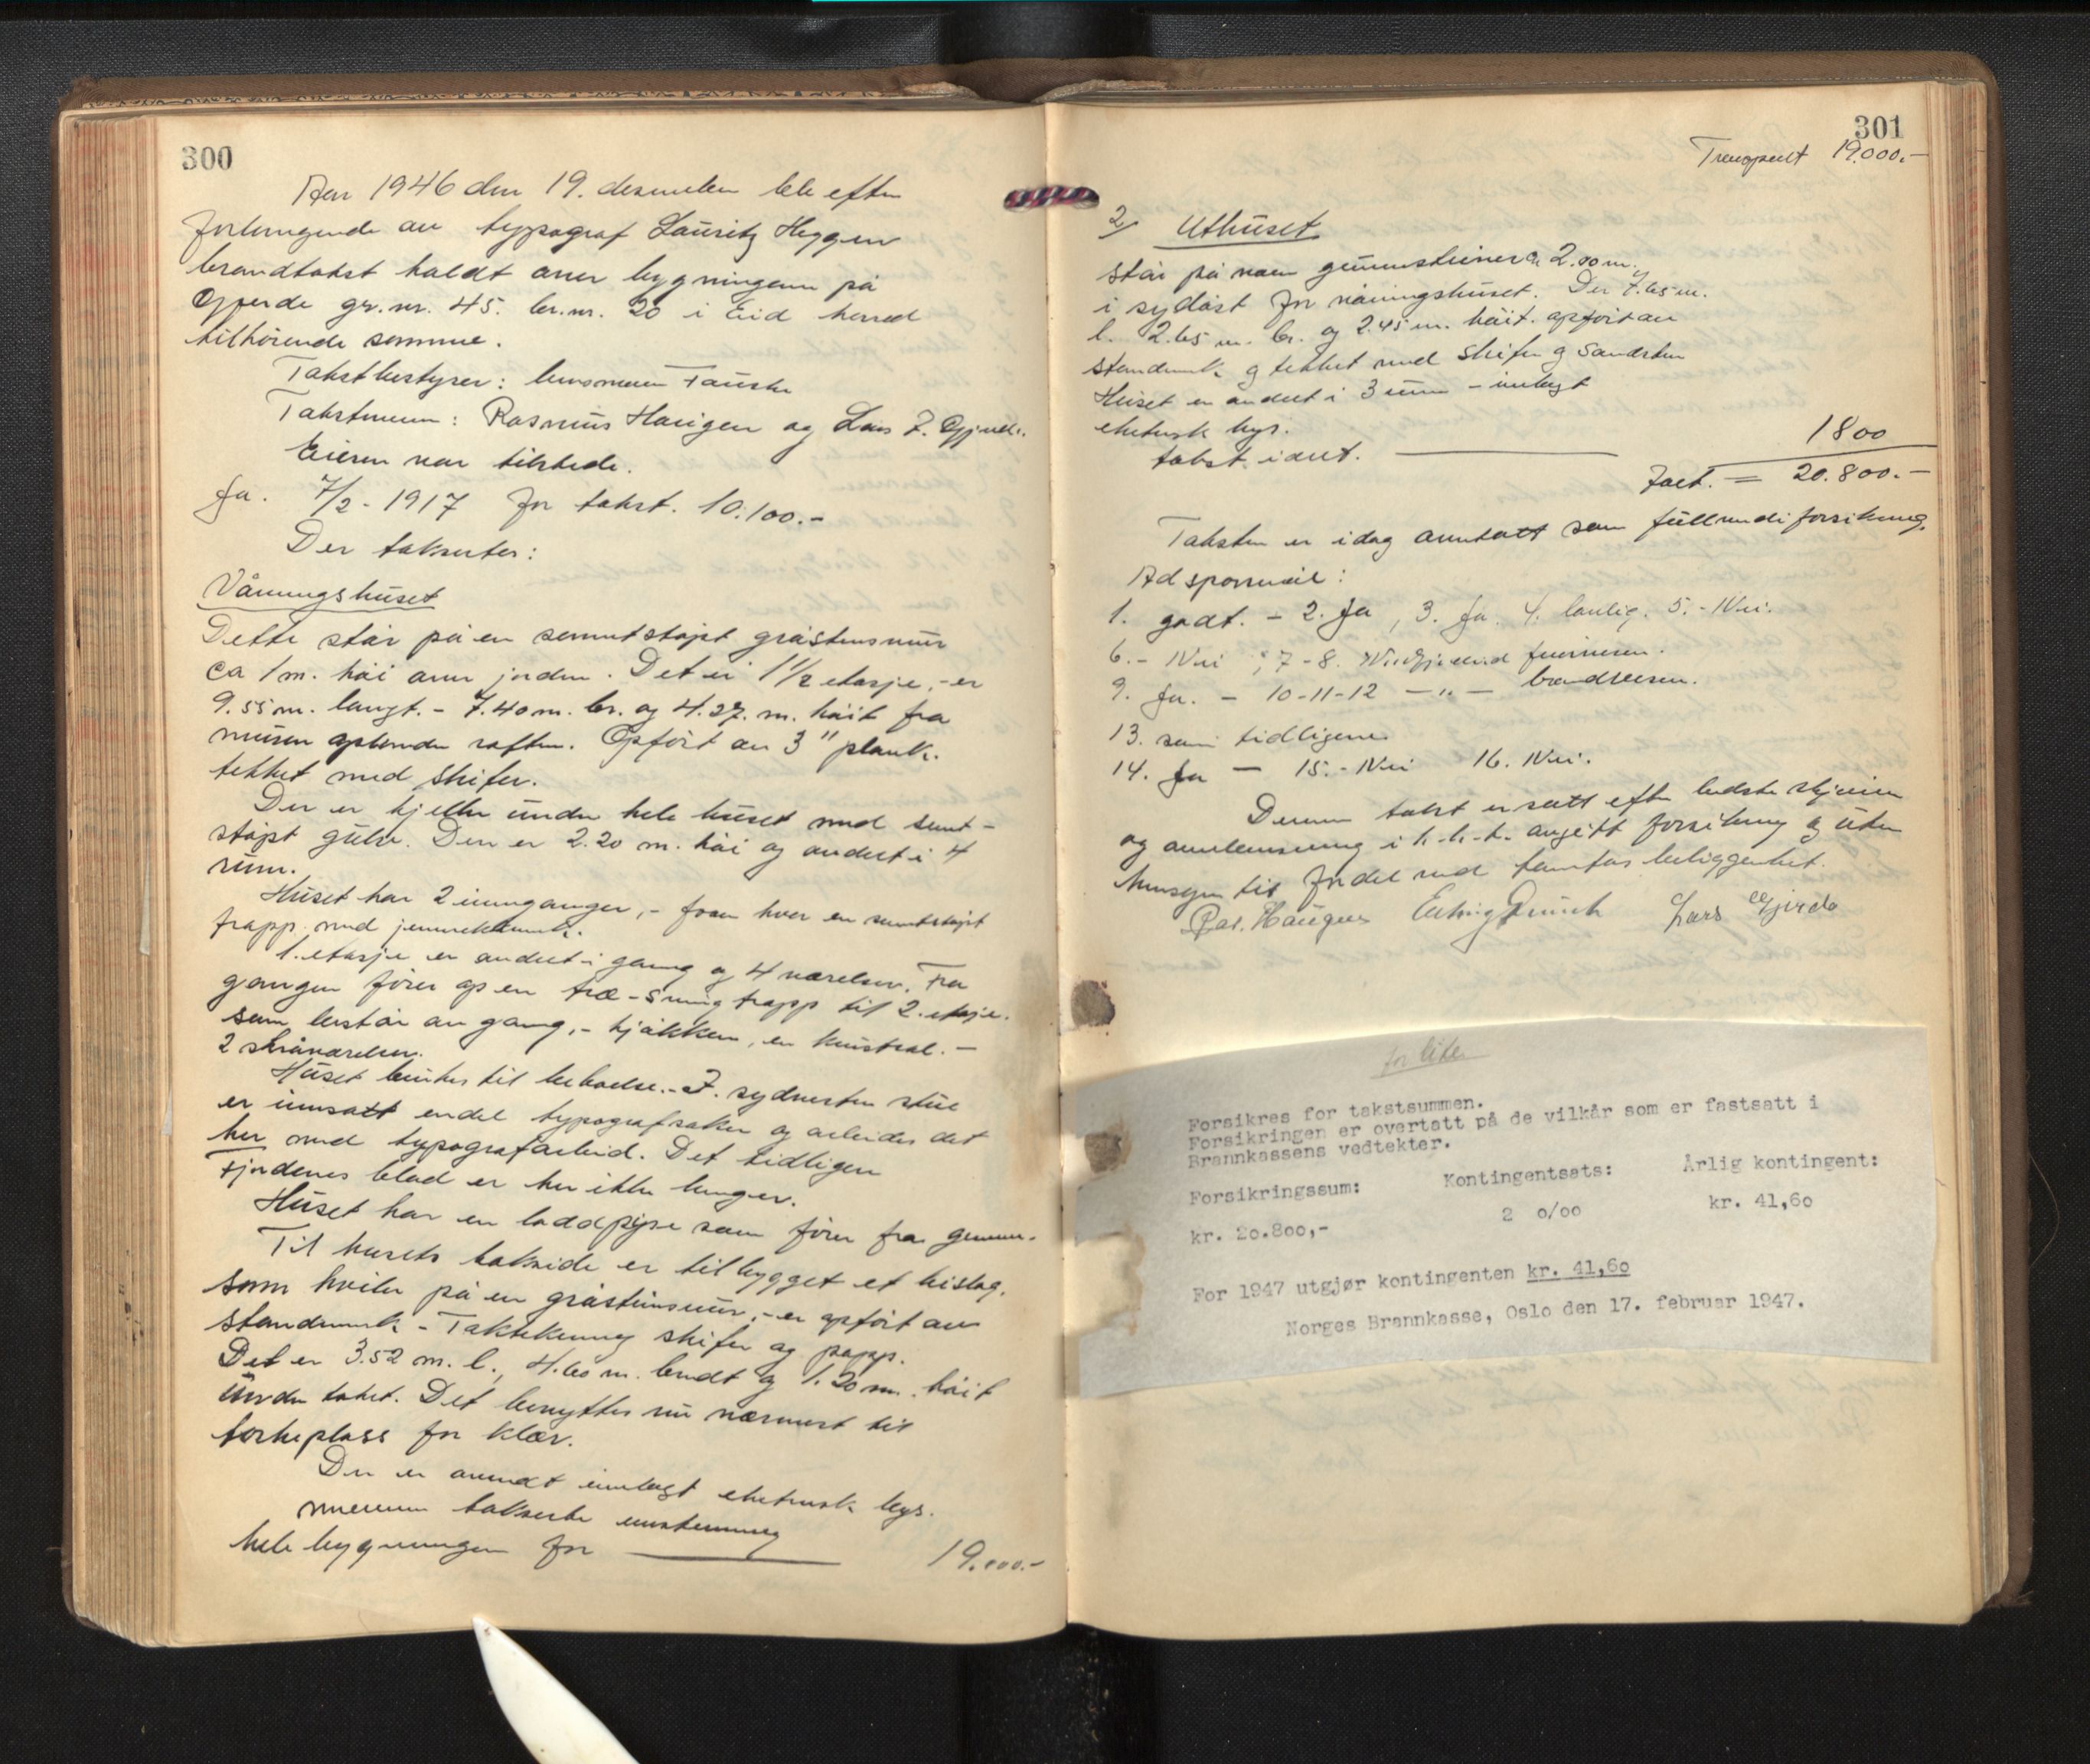 300
Aar 1946 den 19. desember ble efter
forlangende av typograf Lauritz Heggen
brandtakst holdt over bygningene på
Gjerde gr.nr. 45. br.nr. 20 i Eid herred
tilhörende samme.
Takstbestyrer: lensmann
Takstmenn: Rasmus Haugen og Lars J. Gjerde.
Eieren var tilstede.
Ja. 7/2 - 1917 for takst. 10.100.-
Der takseres:
Våningshuset
Dette står på en sementstöpt gråstensmur
ca 1 m. höi over jorden. Det er 1 1/2 etasje, - er
9.55 m. langt. - 7.40 m. br. og 4.27. m. höit fra
muren optil under raften. Opfört av 3" plank.
tekket med skifer.
Der er kjeller under hele huset med sement-
stöpt gulv. Den er 2.20 m. höi og avdelt i 4
rum.
Huset har 2 innganger, - foran hver en sementstöpt
trapp med
1. etasje er avdelt i gang og 4 værelser. Fra
gangen förer op en træ-svingtrapp til 2. etasje.
som består av gang, - kjökken, en kvistsal. -
2 skråværelser.
Huset brukes til beboelse. - I. sydvestre stue
er innsatt endel typografsaker og arbeides det
her med typografarbeid. Det tidligere
Fjordenes blad er her ikke lenger.
Huset har en loddpipe som förer fra grunn.
Til husets bakside er tilbygget et bislag.
som hviler på en gråstensmur, - er opfört av
standverk - Taktekning skifer og papp.
Det er 3.52 m. l., 4.60 m. bredt og 1.20 m. höit
under taket. Det benyttes nu nærmest til
törkeplass for klær.
Der er overalt innlagt elektrisk lys.
mennene takserte enstemmig
hele bygningen for 19.000.-
301
Transport 19.000.-
2/ Uthuset
står på noen grunnsteiner ca 2.00 m.
i sydöst for våningshuset. Der 7.65 m.
l. 2.65 m. br. og 2.45 m. höit. opfört av
standverk og tekket med skifer og
Huset er avdelt i 3 rum - innlagt
elektrisk lys.
takst. idet. 1800
Jalt. = 20.800.-
Taksten er idag ansatt som fullverdiforsikring.
Ad sporsmål:
1. godt. - 2. Ja, 3. Ja. 4. lovlig. 5. - Nei.
6. - Nei ; 7-8. Vedgjelend feiervesen.
9. Ja. - 10-11-12 - " - brandvesen.
13. som tidligere
14. Ja - 15. - Nei 16. Nei.
Denne takst er satt efter bedste skjönn
og overbevisning i h.h.t. avgitt forsikring og uten
hensyn til fordel ved tomtas beliggenhet.
Ras. Haugen Lars Gjerde
for liten
Forsikres for takstsummen.
Forsikringen er overtatt på de vilkår som er fastsatt i
Brannkassens vedtekter.
Forsikringssum: Kontingentsats: Årlig kontingent:
kr. 20.800,- 2 o/oo kr. 41,60
For 1947 utgjør kontingenten kr. 41,60
Norges Brannkasse, Oslo den 17. februar 1947.